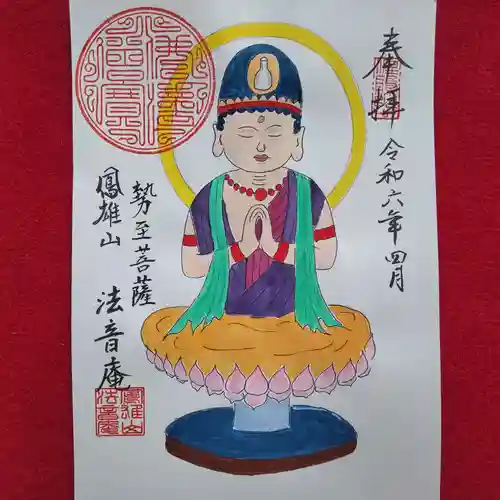 奉拝
令和六年四月
勢至菩薩
鳳雄山
法音庵
鳳雄山
法音庵